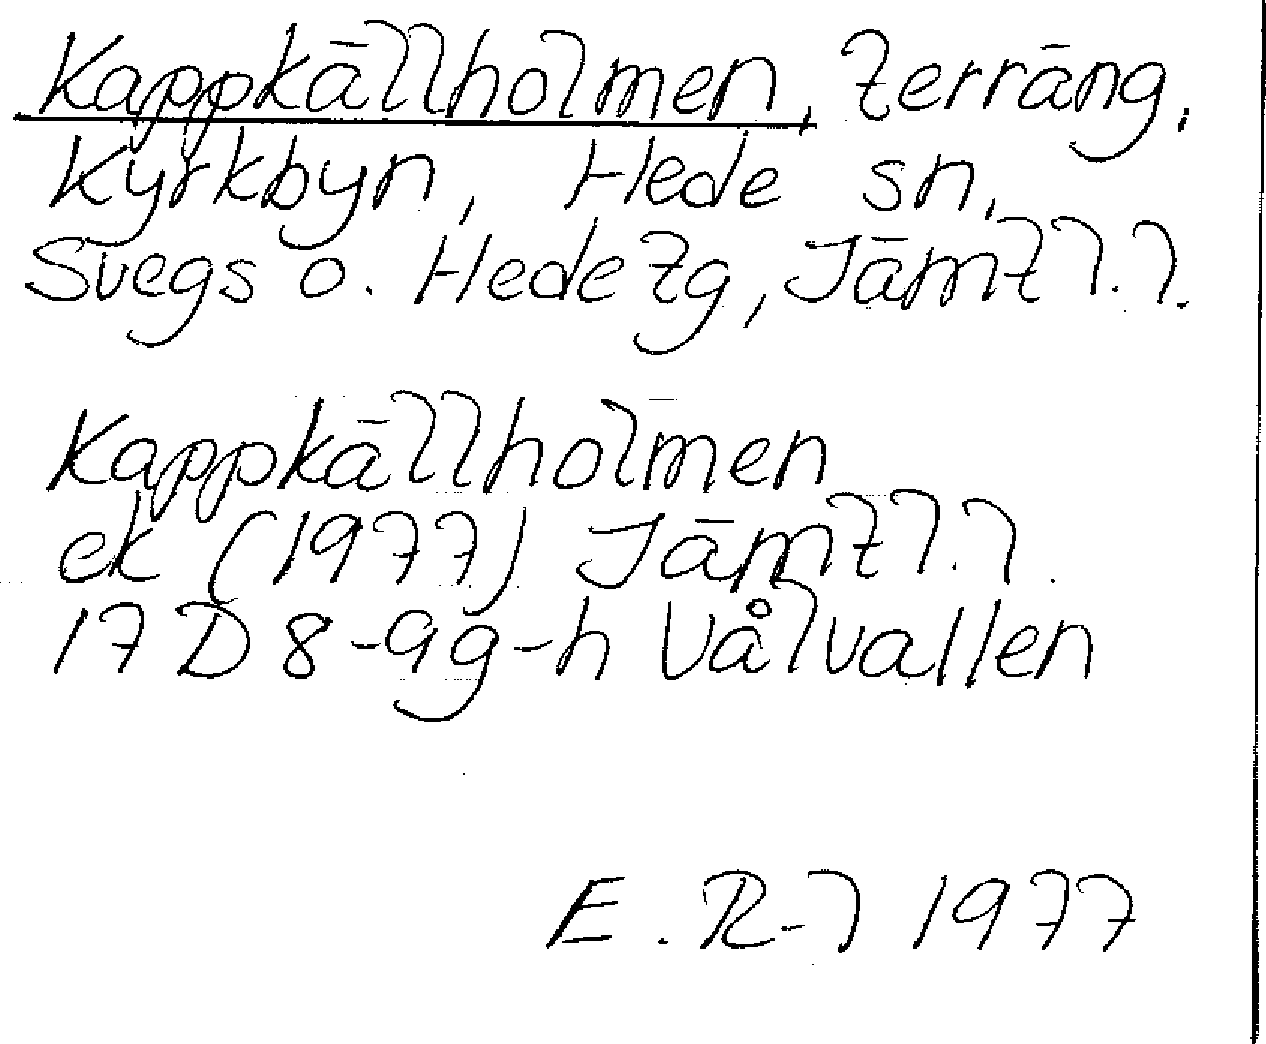 Kappkällholmen, terräng,
Kyrkbyn, Hede sn,
Svegs o. Hede tg, Jämtl.l.
Kappkällholmen
ek (1977) Jämtl.l.
17 D 8-9g-h Vålvallen
E. R-l 1977